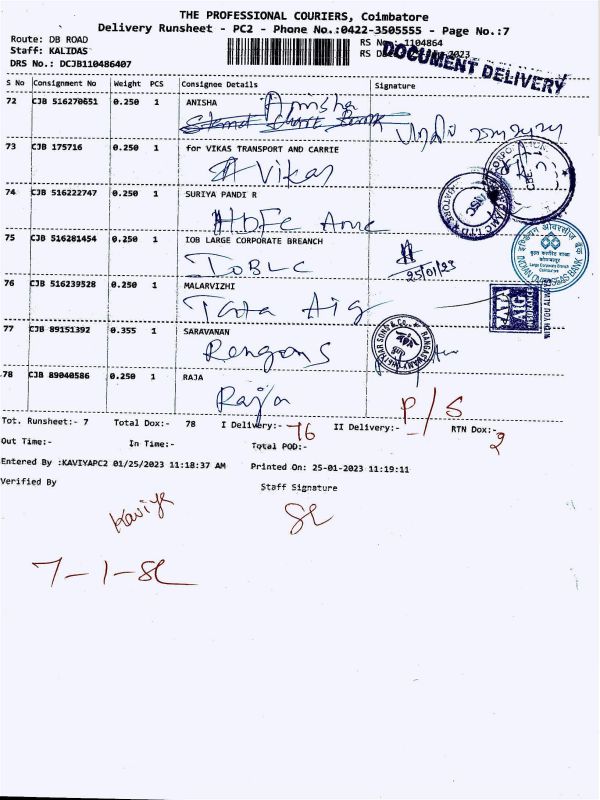 THE PROFESSIONAL COURIERS, Coimbatore
Delivery Runsheet - PC2 - Phone No.:0422-3505555 - Page No.:7
Route: DB ROAD
Staff: KALIDAS
DRS No.: DCJB110486407
RS No.: 1104864
DOCUMENT DELIVERY
S No Consignment No Weight PCS Consignee Details Signature
72 CJB 516270651 0.250 1 ANISHA
Anisha
73 CJB 175716 0.250 1 for VIKAS TRANSPORT AND CARRIE
Vikas
74 CJB 516222747 0.250 1 SURIYA PANDI R
HDFC Amc
75 CJB 516281454 0.250 1 IOB LARGE CORPORATE BREANCH
IOBLC
25/01/23
इण्डियन ओवरसीज़ बैंक
INDIAN OVERSEAS BANK
76 CJB 516239528 0.250 1 MALARVIZHI
Tata Aig
TATA AIG
INSURANCE
WITH YOU ALWAYS
77 CJB 89151392 0.355 1 SARAVANAN
Rengans
78 CJB 89040586 0.250 1 RAJA
Raja
P/S
Tot. Runsheet:- 7 Total Dox:- 78 I Delivery:- 76 II Delivery:- RTN Dox:- 2
Out Time:- In Time:- Total POD:-
Entered By :KAVIYAPC2 01/25/2023 11:18:37 AM Printed On: 25-01-2023 11:19:11
Verified By Staff Signature
Kaviya